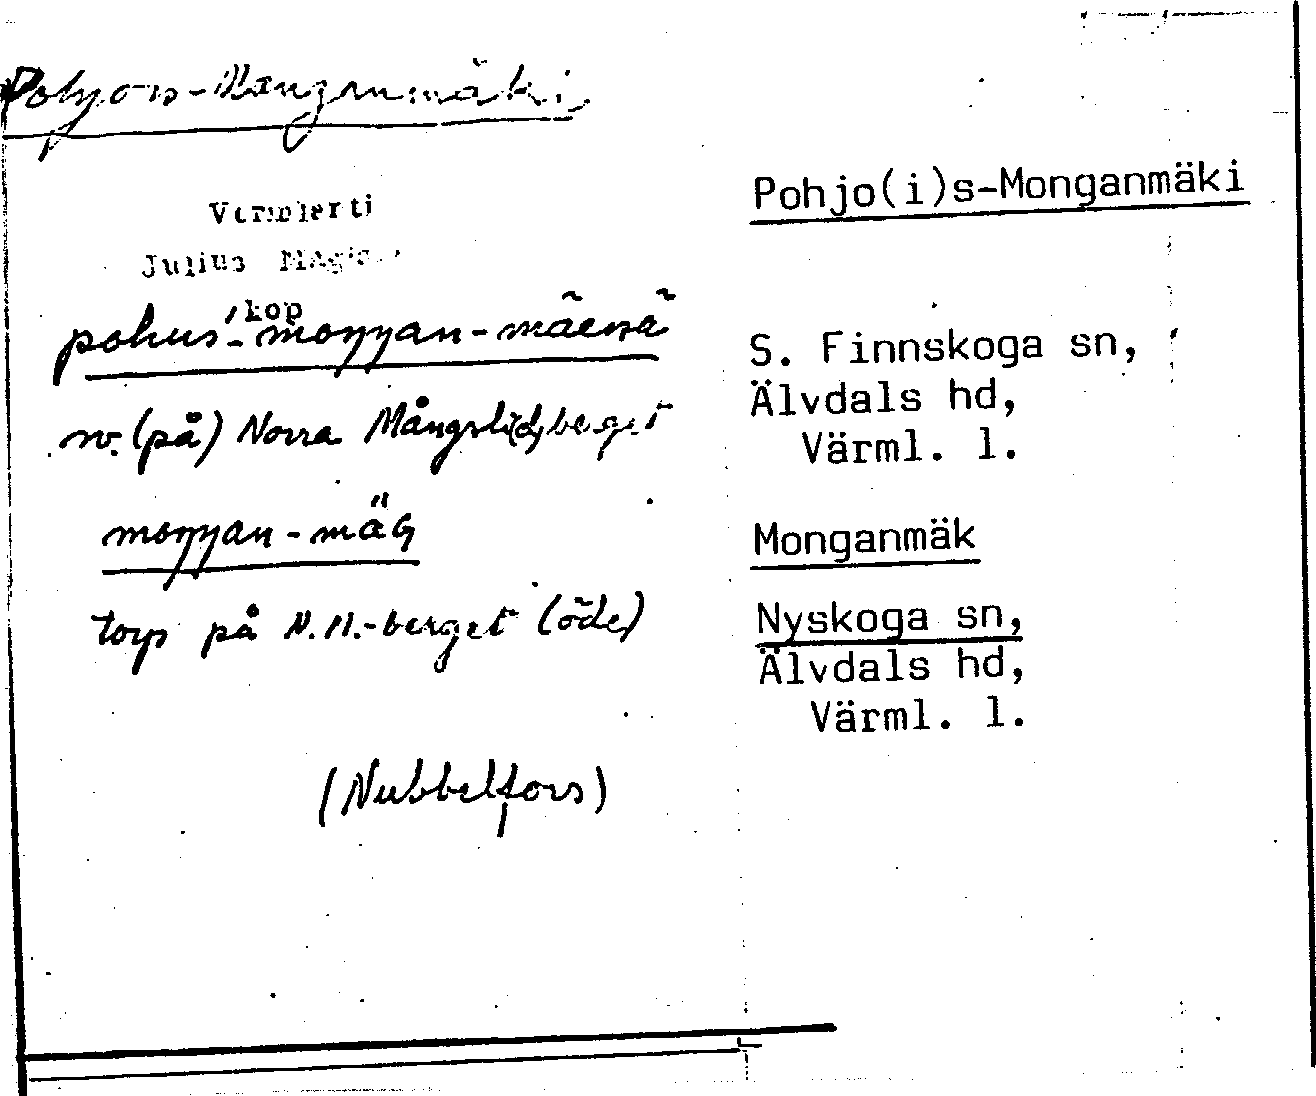 Pohjois-Monganmäki
Pohjo(i)s-Monganmäki
Julius Mägiste
kop
pohus-moŋŋan-mäenä
S. Finnskoga sn,
Älvdals hd,
Värml. l.
nv. (på) Norra Mångslidberget
moŋŋan-mäG
Monganmäk
torp på N.M.-berget (öde)
Nyskoga sn,
Älvdals hd,
Värml. l.
(Nubbelfors)